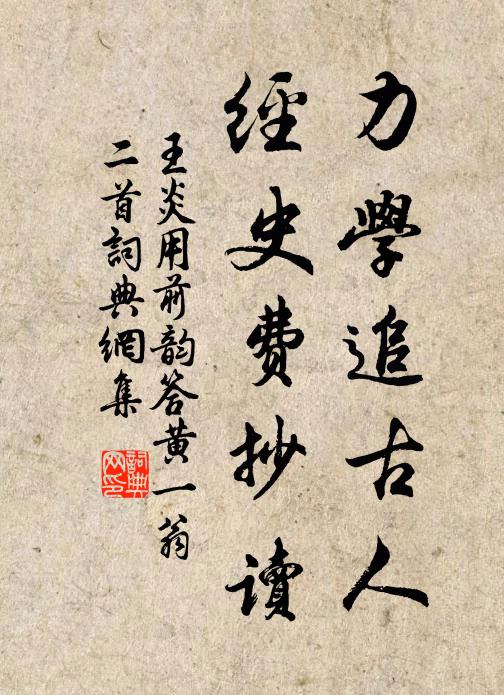 力學追古人
經史費抄讀
王炎用前韵答黄一翁
二首詞典網集
詞典网印